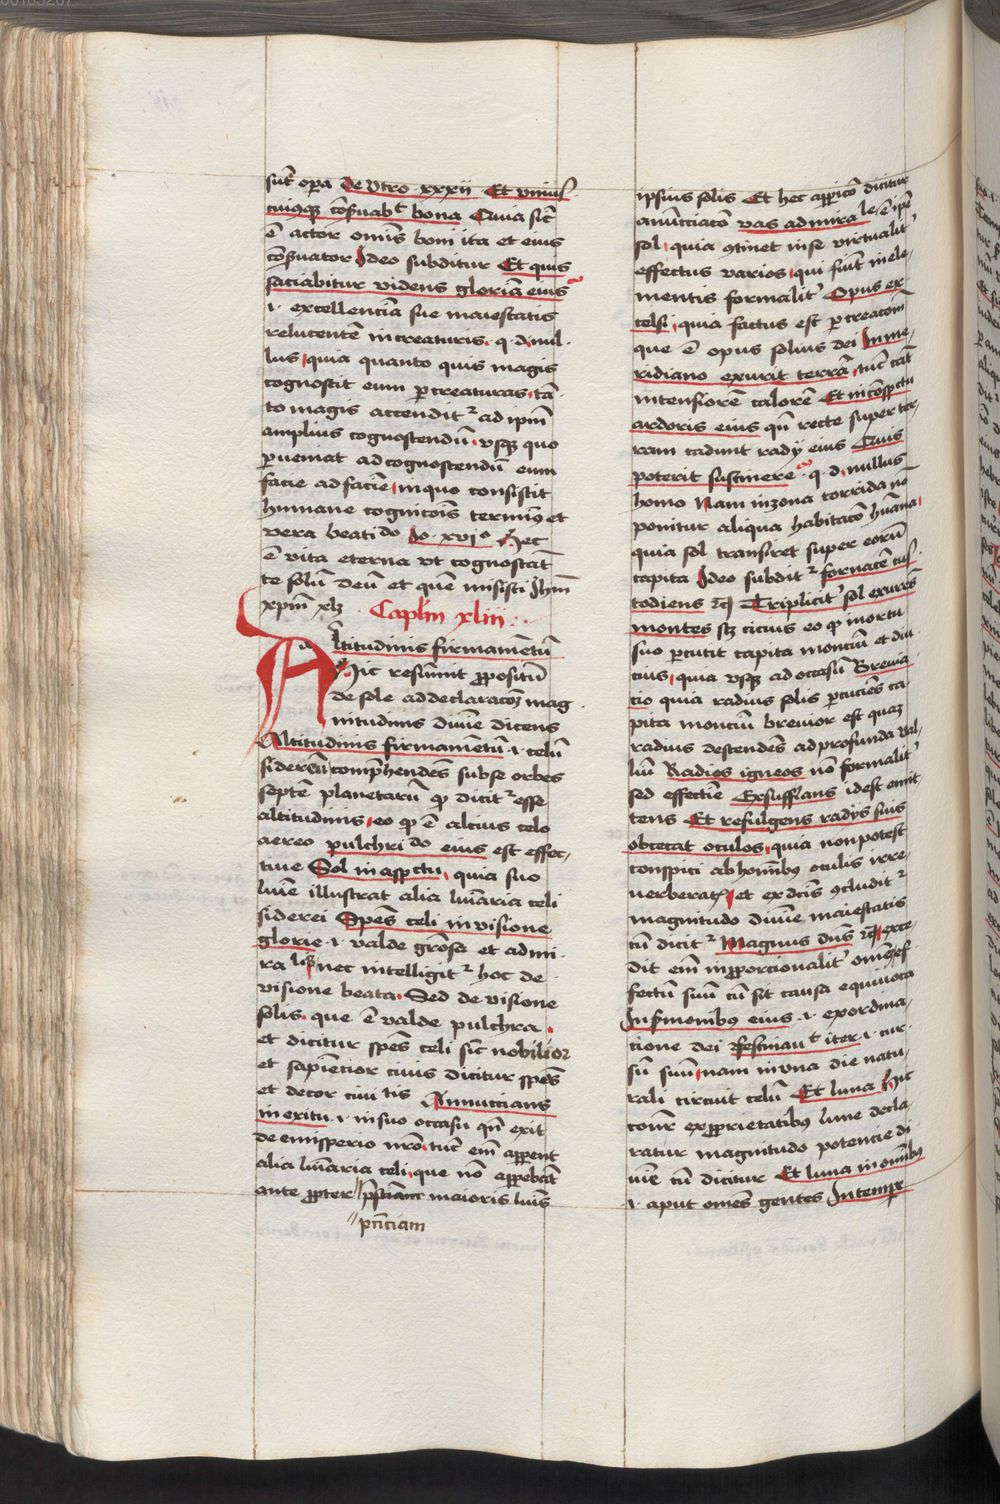 sūt opa de vtro xxxii Et vnius
cuiusqꝫ cōseruabᵗ bona Quia sic̄
ē actor omīs boni ita et eius
cōseruator Ideo subditur Et quis
saciabitur videns gloriā eius
.i. excellenciā sue maiestatis
relucentē in creaturis . q . d . nul
lus quia quanto quis magis
cognoscit eum per creaturas tā
to magis accenditᷣ ad ipm̄
amplius cognoscendū vsqꝫ quo
perueniat ad cognoscendū eum
facie ad faciē in quo consistit
humane cognicōis terminꝰ et
vera beatido Io . xviiº Hec
ē vita eterna vt cognoscāt
te solū deū et quē misisti Ihm̄
xpm̄ xlꝫ Caplm̄ xliii
Altitudinis firmamētū
Hic resumit propositū
de sole ad declaracōꝫ mag
nitudinis diuīe dicens
Altitudinis firmamētū .i. celū
sidereū comprehendēs sub se orbes
septē planetarū quod dicitᷣ esse
altitudinis eo quod ē alcius celo
aereo pulchrido eius est effec
tiue Sol in aspectu quia suo
lumīe illustrat alia lumīaria celi
siderei Spēs celi in visione
glorie .i. valde grōsa et admi
ralis nec intelligitᷣ hoc de
visione beata Sed de visione
solis que ē valde pulchra
et dicitur spēs celi sic̄ nobilior
et sapiencior ciuis dicitur spēs
et decor ciuitatis Annuccians
in exitu .i. in suo occasu qn̄ exit
de emisperio nr̄o tūc em̄ apparent
alia lumīaria celi que nō apparebāt
ante propter p̄stanciam maioris lumīs
// pn̄ciam
ipsius solis Et hec apparicō dicitur
anūcciacō vas admirale ē ipē
sol quia ꝯtinet in se virtualitᷣ
effectus varios qui fiūt in ele
mentis formalitᷣ Opus ex
celsi quia factus est per creacōm̄
que ē opus solius dei In me
ridiano exurit terrā tūc cāt
intensiorē calorē Et in cōspectu
ardoris eius qn̄ recte super ter
ram cadunt radij eius Quis
poterit sustinere . q . d . nullus
homo Nam in zona torrida nō
ponitur aliqua habitacō humāna
quia sol transiret super eorū
capita Ideo subditᷣ fornacē cus
todiens &c Triplicitᷣ sol exurēs
montes sꝫ cicius eo quod in ortu
suo percutit capita moncīu et diu
cius quia vsqꝫ ad occasū Brevia
cio quia radius solis percuciēs ca
pita monciū breuior est quaꝫ
radius descendēs ad profunda val
liū Radios igneos nō formalitᷣ
sed effectiē Exsufflans idest emit
tens Et refulgens radijs suis
obcecat oculos quia non potest
conspici ab hominibꝰ oculis irre
uerberatꝭ et ex dc̄is ꝯcluditᷣ
magnitudo diuīe maiestatis
cū dicitᷣ Magnus dn̄s &c exce
dit em̄ inproporcionalitᷣ omēs ef
fectū suū cū sit causa equiuoca
In sermonibꝰ eius .i. ex ordina
cione dei festinauᵗ iter .i. cur
sū suū nam in vna die natu
rali circuit celū Et luna Hic
ex proprietatibꝰ lune decla
ratur magnitudo potencie di
uīe cū dicitur Et luna in omībꝰ
.i. aput omēs gentes In tempore